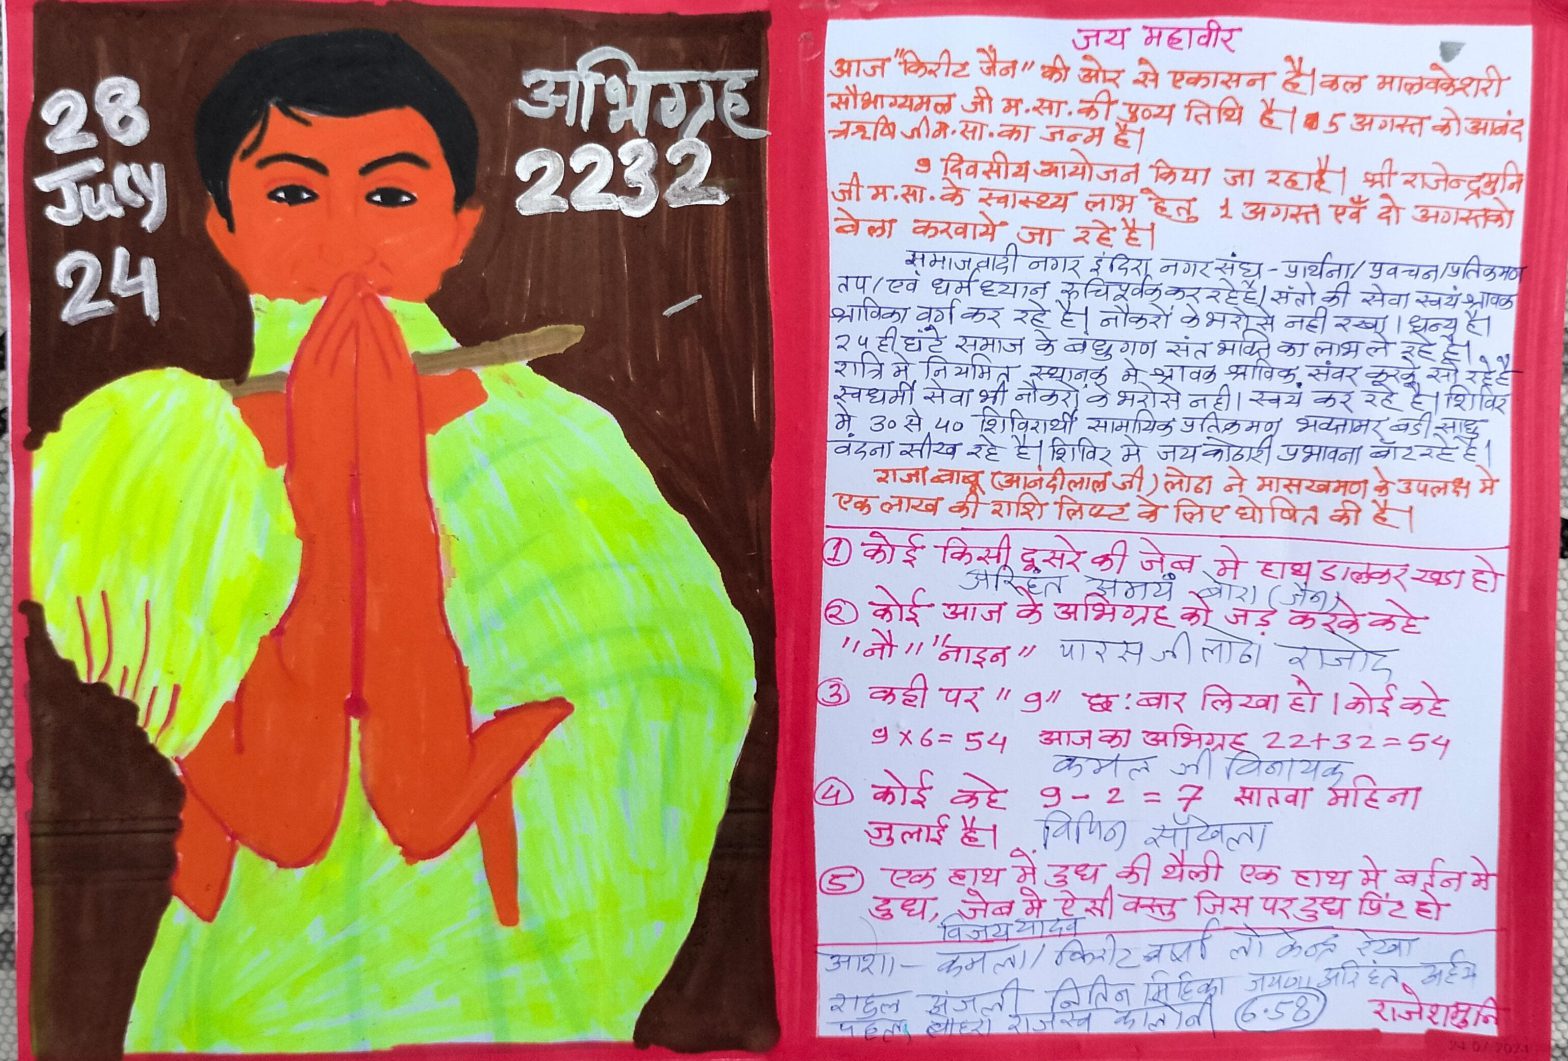 28
July
24
अभिग्रह
2232
जय महावीर
आज "किरीट जैन" की ओर से एकासन है। कल मालवकेशरी
सौभाग्यमल जी म.सा. की पुण्य तिथि है। 5 अगस्त को आनंद
ऋषि जी म.सा. का जन्म है।
9 दिवसीय आयोजन किया जा रहा है। श्री राजेन्द्रमुनि
जी म.सा. के स्वास्थ्य लाभ हेतु 1 अगस्त एवँ दो अगस्त को
बेला करवाये जा रहे है।
समाजवादी नगर इंदिरा नगर संघ - प्रार्थना/प्रवचन/प्रतिक्रमण
तप/एवं धर्मध्यान रूचिपूर्वक कर रहे है। संतो की सेवा स्वयं श्रावक
श्राविका वर्ग कर रहे है। नौकरों के भरोसे नही रखा। धन्य है।
24 ही घंटे समाज के बंधुगण संत भक्ति का लाभ ले रहे है।
रात्रि मे नियमित स्थानक मे श्रावक श्राविक संवर करके सो रहे है
स्वधर्मी सेवा भी नौकरों के भरोसे नही। स्वयं कर रहे है। शिविर
मे 30 से 40 शिविरार्थी सामायिक प्रतिक्रमण भक्तामर बड़ी साधु
वंदना सीख रहे है। शिविर मे जय कोठारी प्रभावना बाँट रहे है।
राजा बाबू (आनंदीलाल जी) लोढा ने मासखमण के उपलक्ष मे
एक लाख की राशि लिफ्ट के लिए घोषित की है।
① कोई किसी दूसरे की जेब मे हाथ डालकर खडा हो
अरिहंत समयं बोरा (जैन)
② कोई आज के अभिग्रह को जोड़ करके कहे
"नौ" "नाइन" पारस जी लोढा राजोद
③ कही पर "9" छ: बार लिखा हो। कोई कहे
9×6=54 आज का अभिग्रह 22+32=54
कमल जी विनायक
④ कोई कहे 9-2=7 सातवा महिना
जुलाई है। विपिन साँखला
⑤ एक हाथ में दुध की थैली एक हाथ मे बर्तन मे
दुध, जेब मे ऐसी वस्तु जिस पर दुध प्रिंट हो
विजय यादव
आशा - कमला/किरीट वर्षा रेखा
राहुल अंजली नितिन अरिहंत
राजस्व कालोनी 6.58 राजेशमुनि